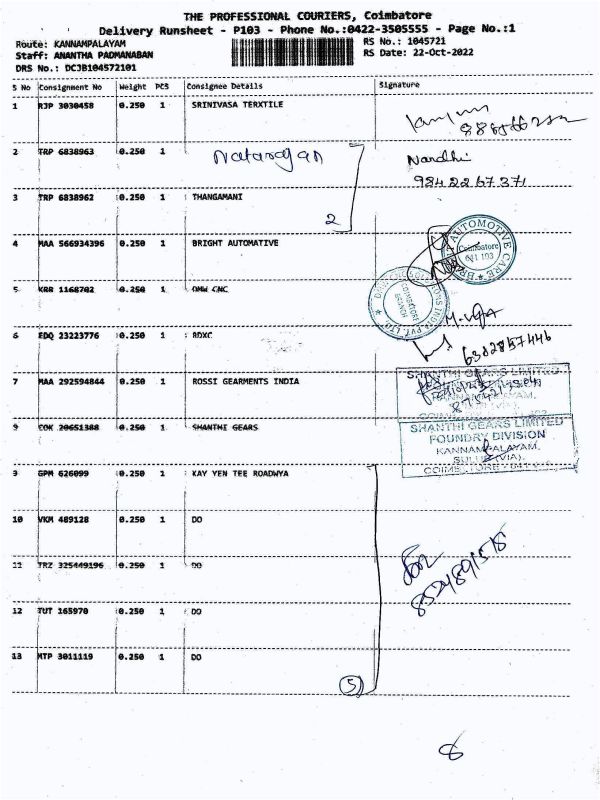 THE PROFESSIONAL COURIERS, Coimbatore
Delivery Runsheet - P103 - Phone No.:0422-3505555 - Page No.:1
Route: KANNAMPALAYAM RS No.: 1045721
Staff: ANANTHA PADMANABAN RS Date: 22-Oct-2022
DRS No.: DCJB104572101
S No Consignment No Weight PCS Consignee Details Signature
1 RJP 3030458 0.250 1 SRINIVASA TERXTILE
2 TRP 6838963 0.250 1 Natarajan Nandhi
9842267371
3 TRP 6838962 0.250 1 THANGAMANI
2
4 MAA 566934396 0.250 1 BRIGHT AUTOMATIVE
AUTOMOTIVE CARE
Coimbatore
641 103
5 KRR 1168702 0.250 1 OMW CNC
COIMBATORE
BRANCH
6 EDQ 23223776 0.250 1 RDXC
7 MAA 292594844 0.250 1 ROSSI GEARMENTS INDIA
SHANTHI GEARS LIMITED
KANNAMPALAYAM,
9 COK 20651388 0.250 1 SHANTHI GEARS
SHANTHI GEARS LIMITED
FOUNDRY DIVISION
KANNAMPALAYAM,
SULUR (VIA),
9 GPM 626099 0.250 1 KAY YEN TEE ROADWYA
10 VKM 489128 0.250 1 DO
11 TRZ 325449196 0.250 1 DO
12 TUT 165970 0.250 1 DO
13 MTP 3011119 0.250 1 DO
5
8